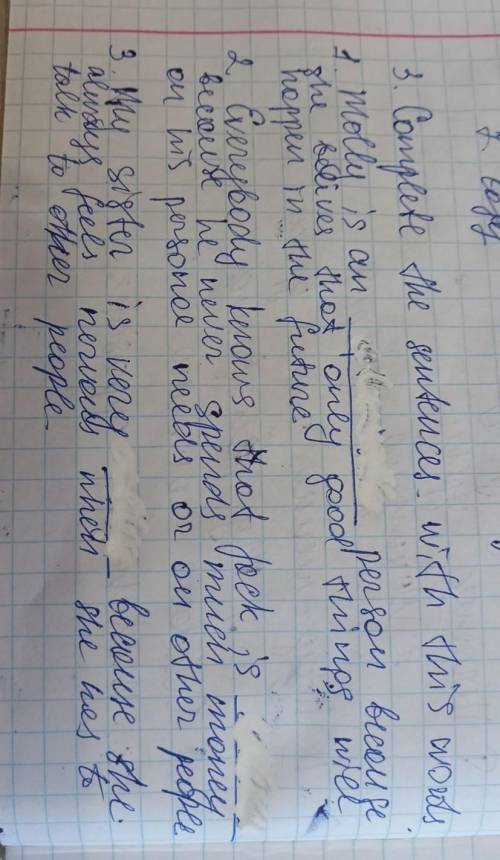 7 easy
3. Complete the sentences with this words
1. Molly is an ________ person because
she belives that only good things will
happen in the future
2. Everybody knows that Jack is ____
because he never spends much money
on his personal needs or on other people
3. My sister is very ____ because she
always feels nervous when she has to
talk to other people